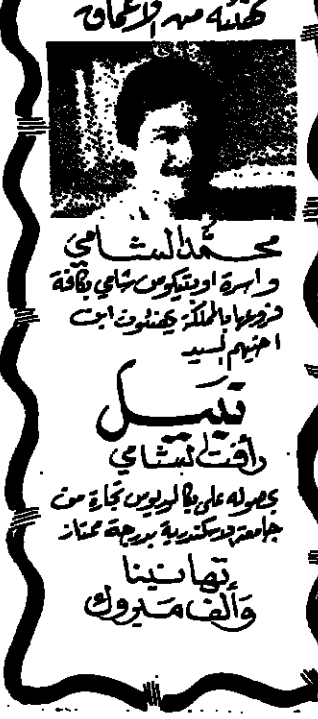 تهنئة من الأعماق
محمد الشامي
واسرة اوبتيكوس شامي بكافة
فروعها بالمملكة يهنئون ابن
اخيهم السيد
نبيل
رأفت الشامي
بحصوله على بكالوريوس تجارة من
جامعة الاسكندرية بدرجة ممتاز
تهانينا
وألف مبروك